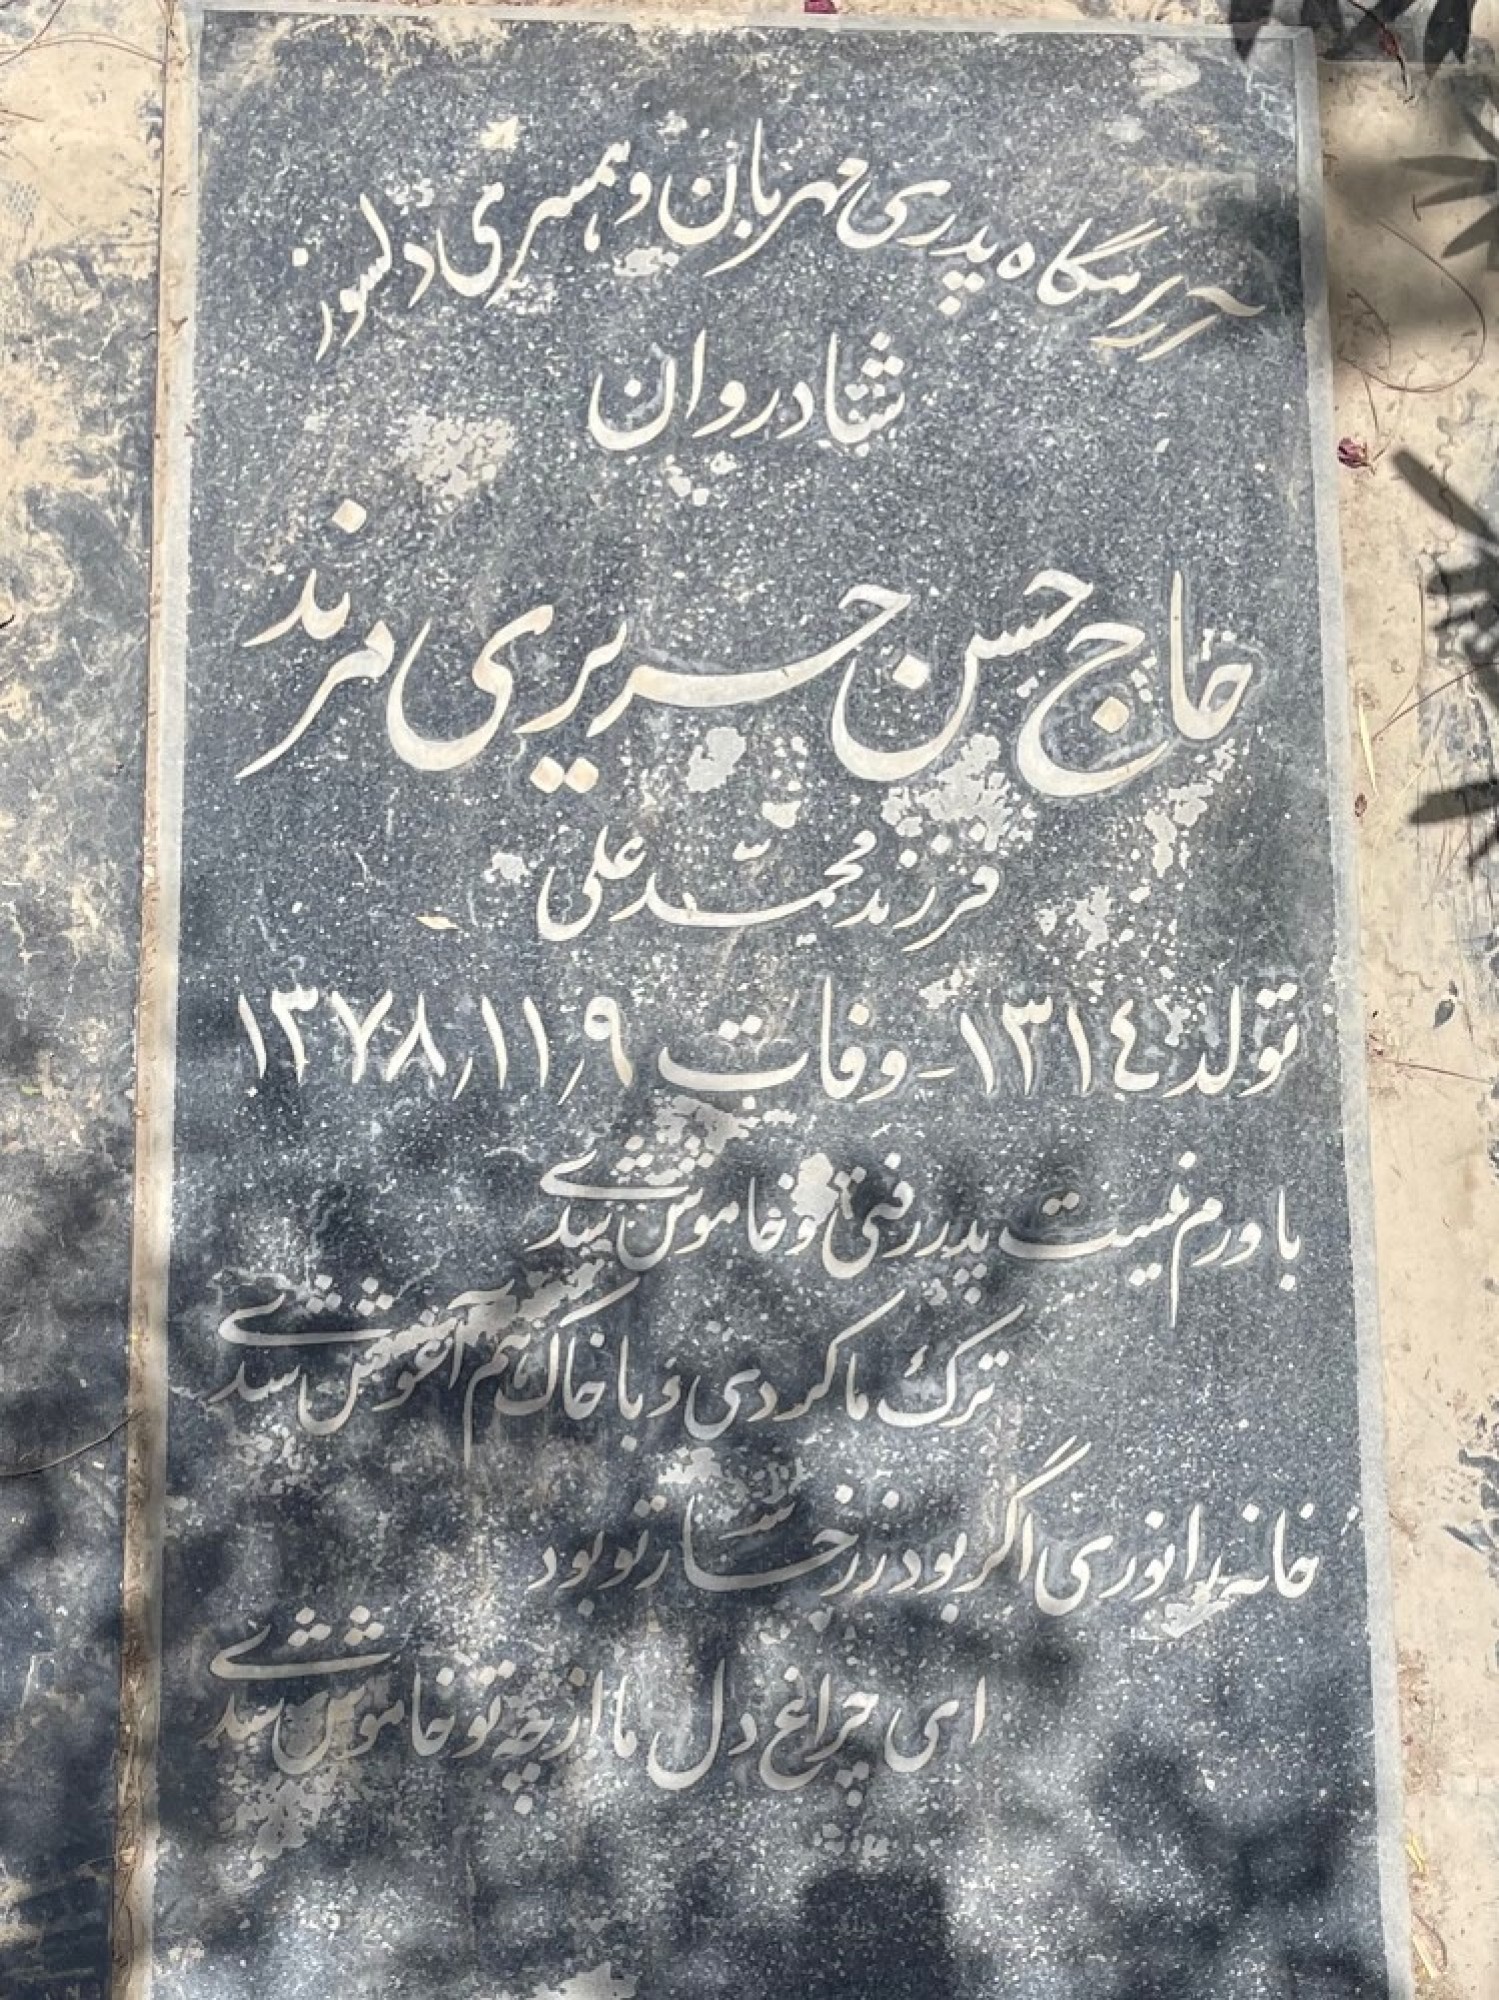 آرامگاه پدری مهربان و همسری دلسوز
شادروان
حاج حسن حریری مرند
فرزند محمّد علی
تولد ١٣١٤ - وفات ٩٫١١٫١٣٧٨
باورم نیست پدر رفتی و خاموش شدی
ترک ما کردی و با خاک هم آغوش شدی
خانه را نوری اگر بود ز رخسار تو بود
ای چراغ دل ما از چه تو خاموش شدی